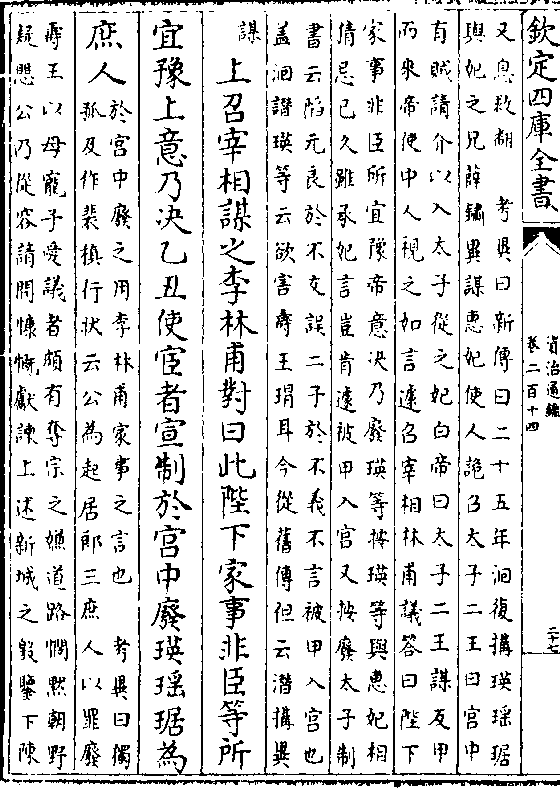 欽定四庫全書
資治通鑑
卷二百十四
二十七
又息救翻　考異曰新傳曰二十五年洄復搆瑛瑶琚
與妃之兄薛鏽異謀惠妃使人詭召太子二王曰宫中
有賊請介以入太子從之妃白帝曰太子二王謀反甲
而來帝使中人視之如言遽召宰相林甫議答曰陛下
家事非臣所宜豫帝意决乃廢瑛等按瑛等與惠妃相
猜忌已久雖承妃言豈肯遽被甲入宫又按廢太子制
書云陷元良於不友誤二子於不義不言被甲入宫也
盖洄譛瑛等云欲害壽王瑁耳今從舊傳但云潜搆異
謀
上召宰相謀之李林甫對曰此陛下家事非臣等所
宜豫上意乃决乙丑使宦者宣制於宫中廢瑛瑶琚為
庶人
於宫中廢之用李林甫家事之言也　考異曰獨
孤及作裴稹行狀云公為起居郎三庶人以罪廢
壽王以母寵子愛議者頗有奪宗之嫌道路憫黙朝野
疑懼公乃從容請間慷慨獻諫上述新城之殷鑒下陳